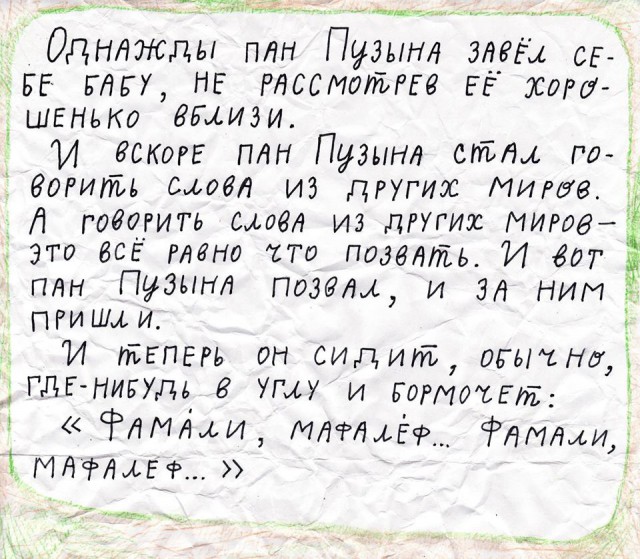 Однажды пан Пузына завёл се-
бе бабу, не рассмотрев её хоро-
шенько вблизи.
И вскоре пан Пузына стал го-
ворить слова из других миров.
А говорить слова из других миров—
это всё равно что позвать. И вот
пан Пузына позвал, и за ним
пришли.
И теперь он сидит, обычно,
где-нибудь в углу и бормочет:
« Фама́ли, мафале́ф... Фамали,
мафалеф... »